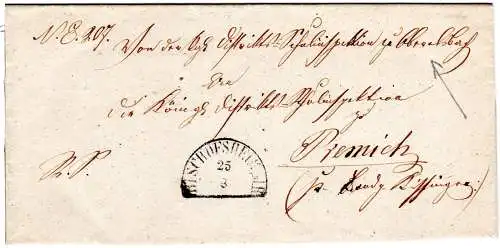 N. E. 207.
Von der Kgl. Distrikts-Schulinspektion zu Oberelsbach
An
die Königl. Distrikts-Schulinspektion
BISCHOFSHEIM
25
3
Premich
R. S.
Kissingen